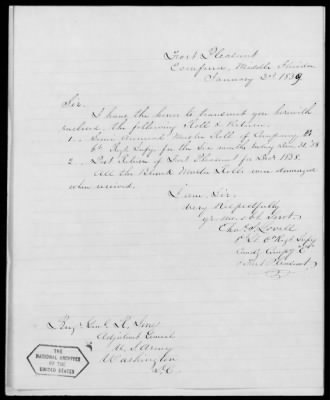 Fort Pleasant
Econfina, Middle Florida
January 2d 1839
Sir.
I have the honor to transmit you herewith
enclosed, the following Rolls & Returns.
1. Semi Annual Muster Roll of Company
6th Regt Infy. for the Six months ending Dec. 31, '38
2. Post Return of Fort Pleasant for Decr 1838.
All the Blank Muster Rolls were damaged
when received.
I am Sir,
Very Respectfully
yr. mo. obt Servt.
Chas. S. Lovell
1st Lt 6th Regt Infy
Comdg Compy
& Fort Pleasant
Brigr Genl R. Jones
Adjutant General
U. S. Army
Washington
D.C.
THE
NATIONAL ARCHIVES
OF THE
UNITED STATES